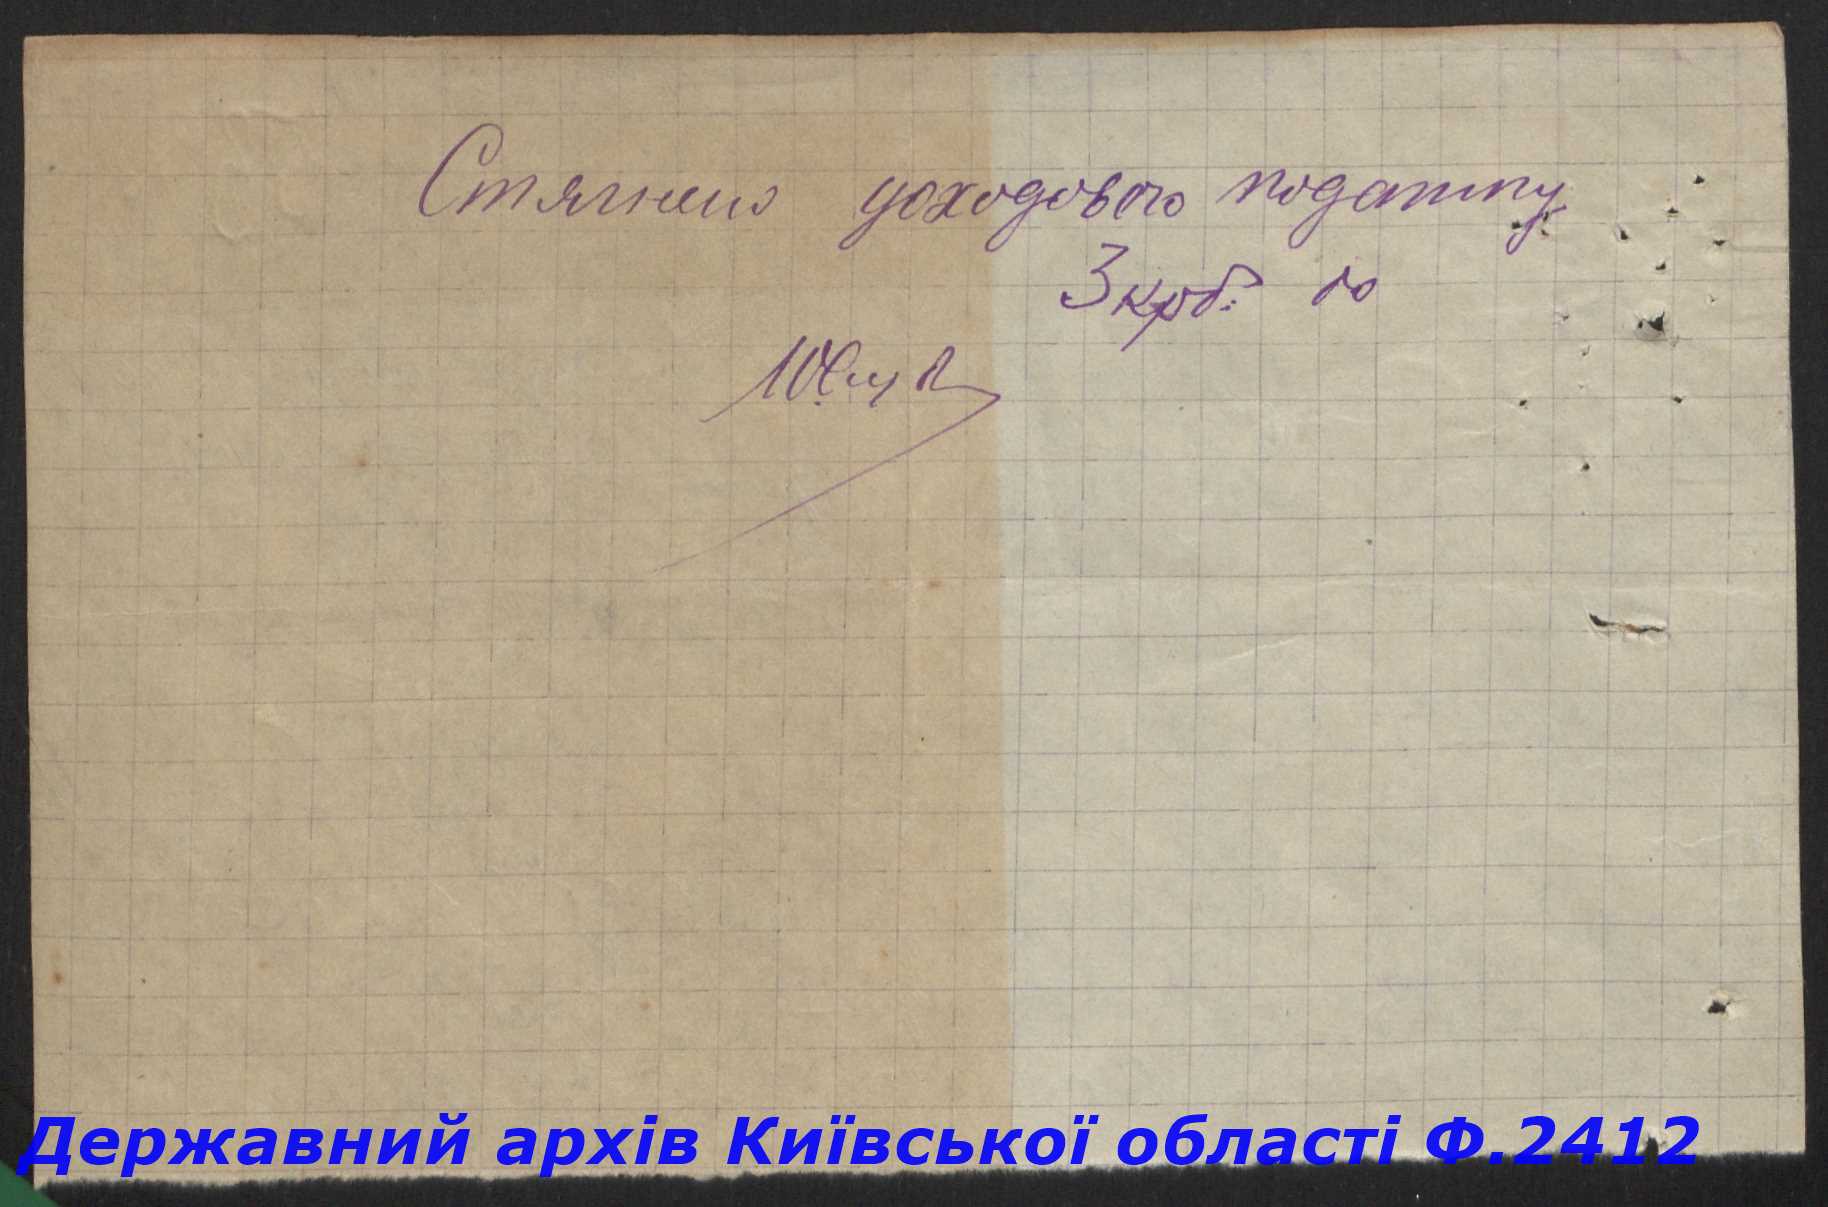 Стягнено доходового податку
3 крб.
Державний архів Київської області Ф.2412